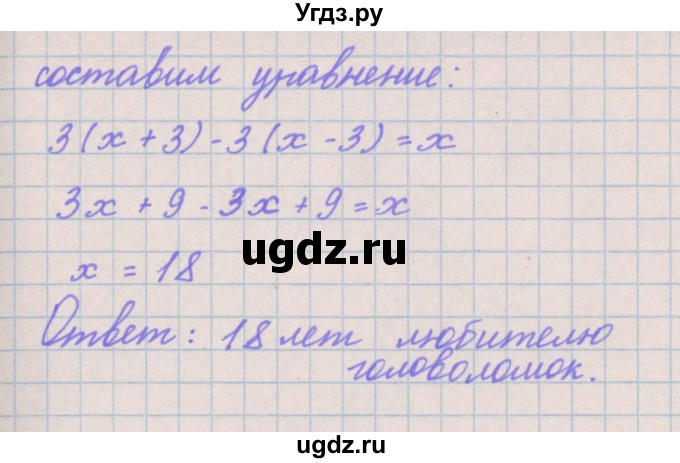 Угдз.ру
составим уравнение:
3(x + 3) - 3(x - 3) = x
3x + 9 - 3x + 9 = x
ugdz.ru
x = 18
Ответ: 18 лет любителю
головоломок.
ugdz.ru